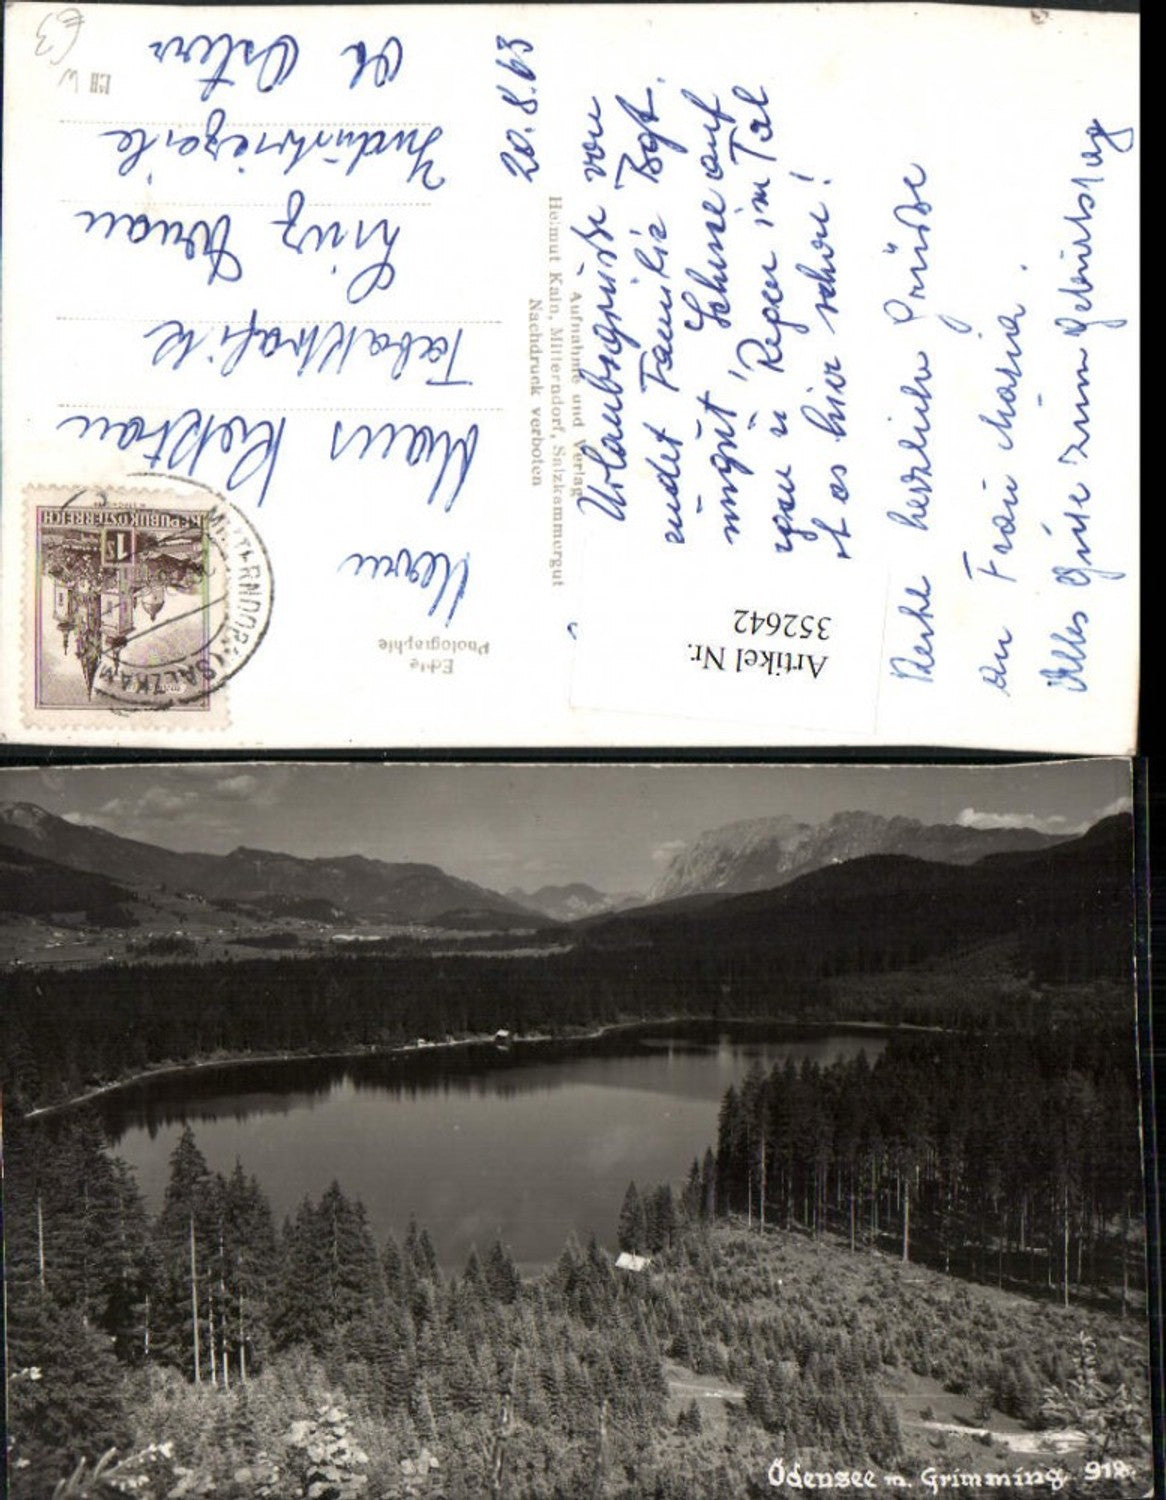 20.8.63
Urlaubsgrüße von
sendet Familie Bgt.
Schnee auf
Regen im Tal
ist es hier schön!
Recht herzliche Grüße
an Frau Maria.
Alles Gute zum Geburtstag
Aufnahme und Verlag
Helmut Kain, Mitterndorf, Salzkammergut
Nachdruck verboten
Echte
Photographie
Herrn
Hans
Tabaktrafik
Linz Donau
Industriezeile
REPUBLIK ÖSTERREICH
1 S
MITTERNDORF (SALZKAM
Artikel Nr.
352642
Ödensee m. Grimming 918.